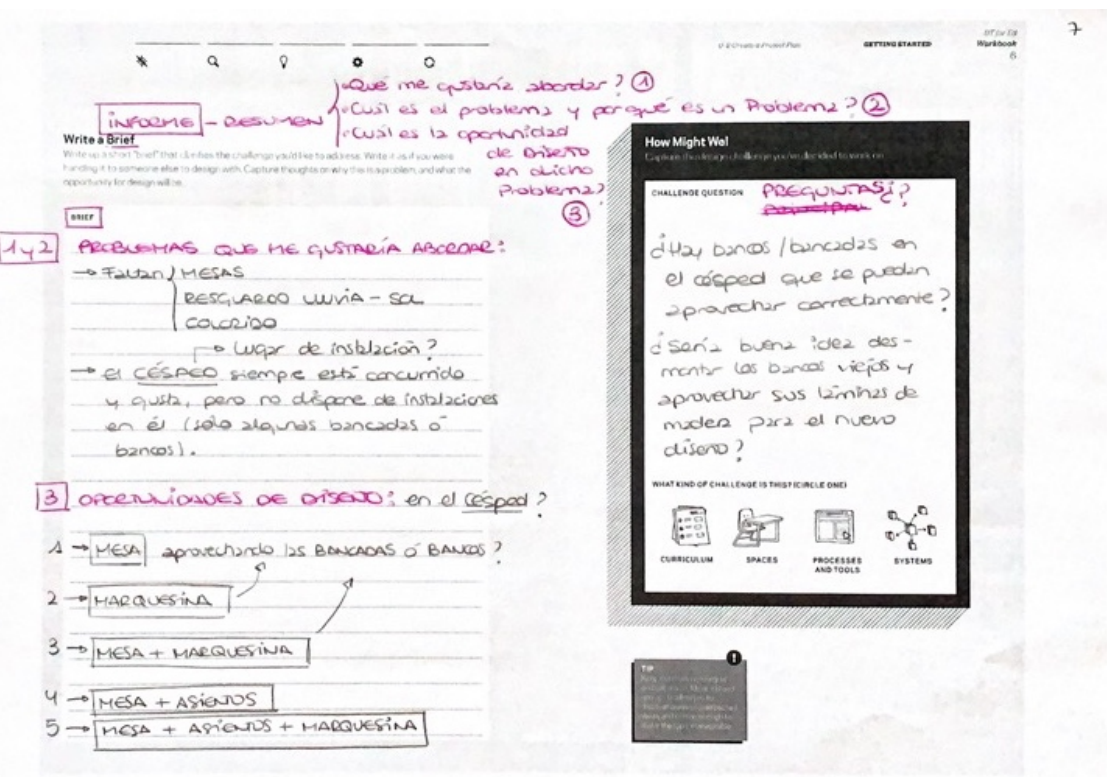 7
0-2 Create a Project Plan
GETTING STARTED
DT for Ed
Workbook
6
• Qué me gustaría abordar? ①
• Cuál es el problema y por qué es un Problema? ②
INFORME - RESUMEN
• Cuál es la oportunidad
de Diseño
en dicho
Problema?
③
Write a Brief
Write up a short "brief" that clarifies the challenge you'd like to address. Write it as if you were
handing it to someone else to design with. Capture thoughts on why this is a problem, and what the
opportunity for design will be.
BRIEF
1 y 2 PROBLEMAS QUE ME GUSTARÍA ABORDAR:
→ Faltan / MESAS
RESGUARDO LLUVIA - SOL
COLORIDO
→ Lugar de instalación?
→ el CÉSPED siempre está concurrido
y gusta, pero no dispone de instalaciones
en él (sólo algunas bancadas ó
bancos).
3 OPORTUNIDADES DE DISEÑO: en el césped?
1 → MESA aprovechando las BANCADAS ó BANCOS?
2 → MARQUESINA
3 → MESA + MARQUESINA
4 → MESA + ASIENTOS
5 → MESA + ASIENTOS + MARQUESINA
How Might We!
Capture the design challenge you've decided to work on
CHALLENGE QUESTION PREGUNTAS¿?
¿Hay bancos / bancadas en
el césped que se puedan
aprovechar correctamente?
¿Sería buena idea des-
montar los bancos viejos y
aprovechar sus láminas de
madera para el nuevo
diseño?
WHAT KIND OF CHALLENGE IS THIS? (CIRCLE ONE)
CURRICULUM
SPACES
PROCESSES
AND TOOLS
SYSTEMS
TIP